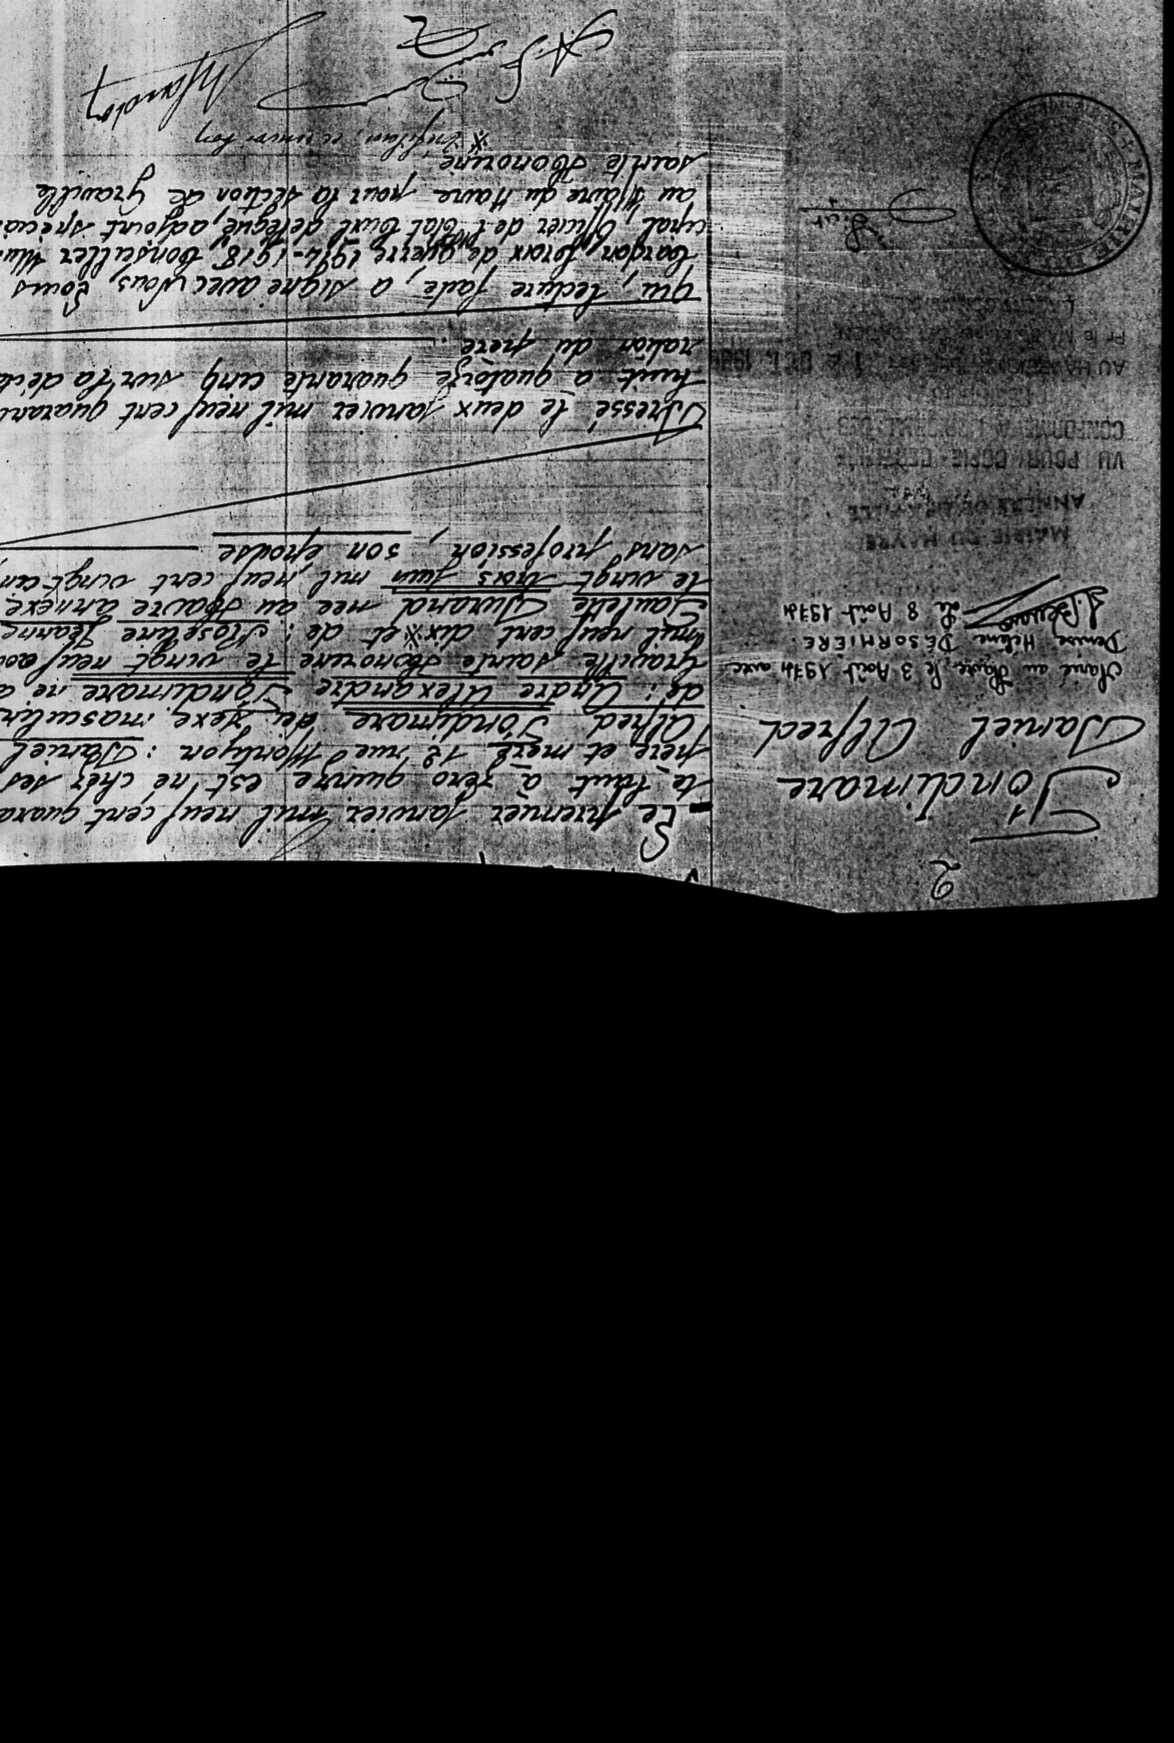 2
Fondimare
Daniel Alfred
Marié au Havre, le 3 Août 1974 avec
Denise Hélène DÉSORMIÈRE.
Le 8 Août 1974
MAIRIE DU HAVRE
ANNEXE DE GRAVILLE
VU POUR COPIE CERTIFIÉE
CONFORME A L'ORIGINAL
AU HAVRE
MAIRIE
Le premier janvier mil neuf cent quara
te huit à zéro
est né chez ses
père et mère 12 rue Monthyon : Daniel
Alfred Fondimare du sexe masculin
de : André Alexandre Fondimare né à
Graville sainte Honorine le vingt neuf aoû
mil neuf cent dix ※ et de : Roseline Jeanne
Paulette Durand née au Havre annexe
le vingt trois juin mil neuf cent vingt cin
sans profession, son épouse
Dressé le deux janvier mil neuf cent quarant
huit à quatorze
quarante cinq sur la décla
ration du père.
Qui, lecture faite, a signé avec Nous, Louis
croix de guerre 1914-1918, Conseiller Mu
cipal, Officier de l'état civil délégué, adjoint spécia
au Maire du Havre pour la section de Graville
sainte Honorine
※